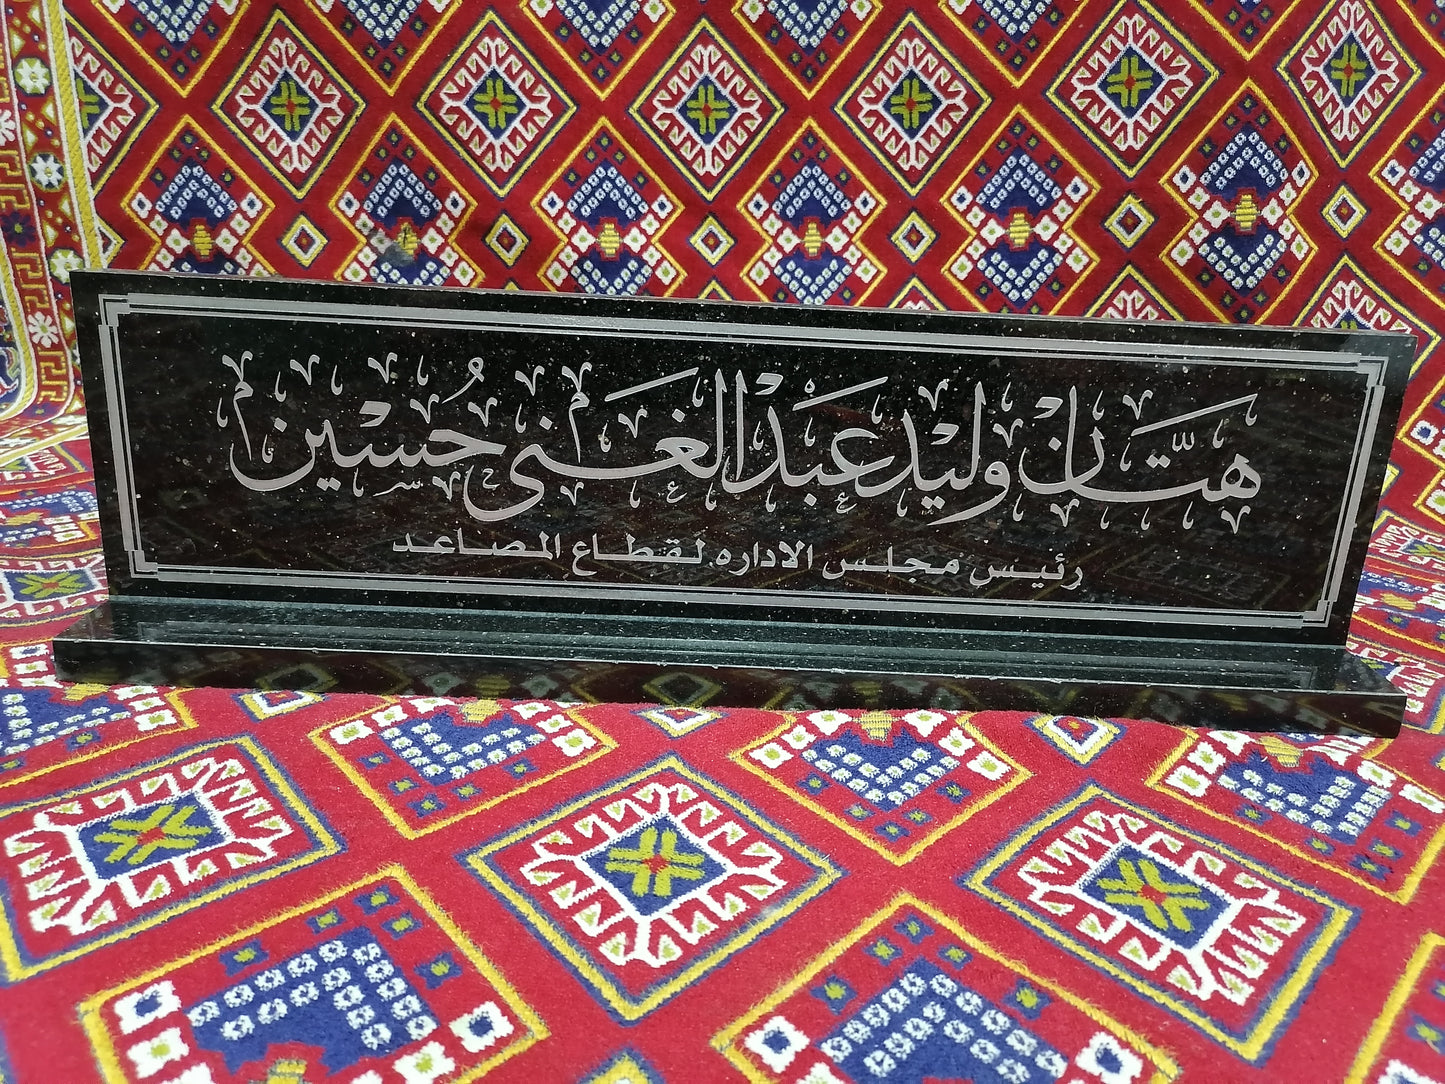 هتّان وليد عبد الغني حُسين
رئيس مجلس الاداره لقطاع المصاعد